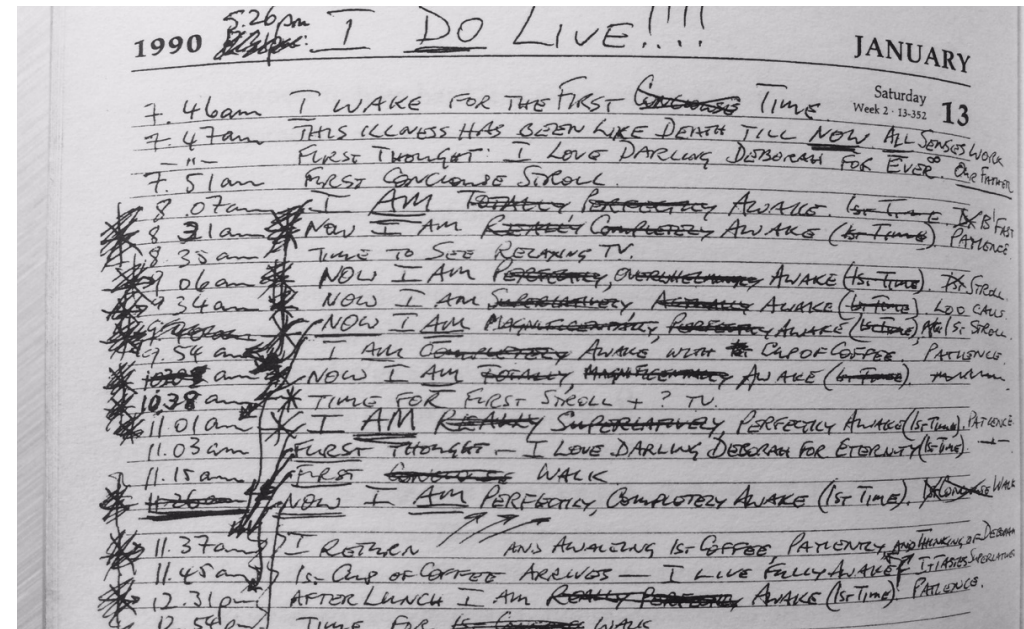 5.26pm I DO LIVE!!!!
1990 JANUARY
Saturday
Week 2 · 13-352 13
7.46am I WAKE FOR THE FIRST TIME.
7.47am THIS ILLNESS HAS BEEN LIKE DEATH TILL NOW ALL SENSES WORK
—"— FIRST THOUGHT: I LOVE DARLING DEBORAH FOR EVER. OUR FATHER
7.51am FIRST CONCIOUSE STROLL.
8.07am I AM TOTALLY PERFECTLY AWAKE. 1ST TIME B'FAST
8 31am NOW I AM REALLY COMPLETELY AWAKE (1ST TIME) PATIENCE
8.35am TIME TO SEE RELAXING TV.
9 06am NOW I AM PERFECTLY, OVERWHELMINGLY AWAKE (1ST TIME). 1ST STROLL
9.34am NOW I AM SUPERLATIVELY, ACTUALLY AWAKE (1ST TIME) LOO CALLS
NOW I AM MAGNIFICENTLY, PERFECTLY AWAKE (1ST TIME), 1ST STROLL
9.54am I AM COMPLETELY AWAKE WITH CUP OF COFFEE. PATIENCE
am NOW I AM TOTALLY, MAGNIFICENTLY AWAKE (1ST TIME).
10.38am TIME FOR FIRST STROLL + ? TV.
11.01am I AM REALLY SUPERLATIVELY, PERFECTLY AWAKE (1ST TIME). PATIENCE
11.03am FURST THOUGHT – I LOVE DARLING DEBORAH FOR ETERNITY (1ST TIME). —"—
11.15am FIRST CONCIOUSE WALK
11.26am NOW I AM PERFECTLY, COMPLETELY AWAKE (1ST TIME). WALK
11.37am I RETURN AND AWAITING 1ST COFFEE, PATIENTLY AND THINKING OF DEBORAH
11.45am 1ST CUP OF COFFEE ARRIVES — I LIVE FULLY AWAKE IT TASTES SUPERLATIVE
12.31pm AFTER LUNCH I AM REALLY PERFECTLY AWAKE (1ST TIME) PATIENCE.
12.54pm TIME FOR 1ST CONCIOUSE WALK